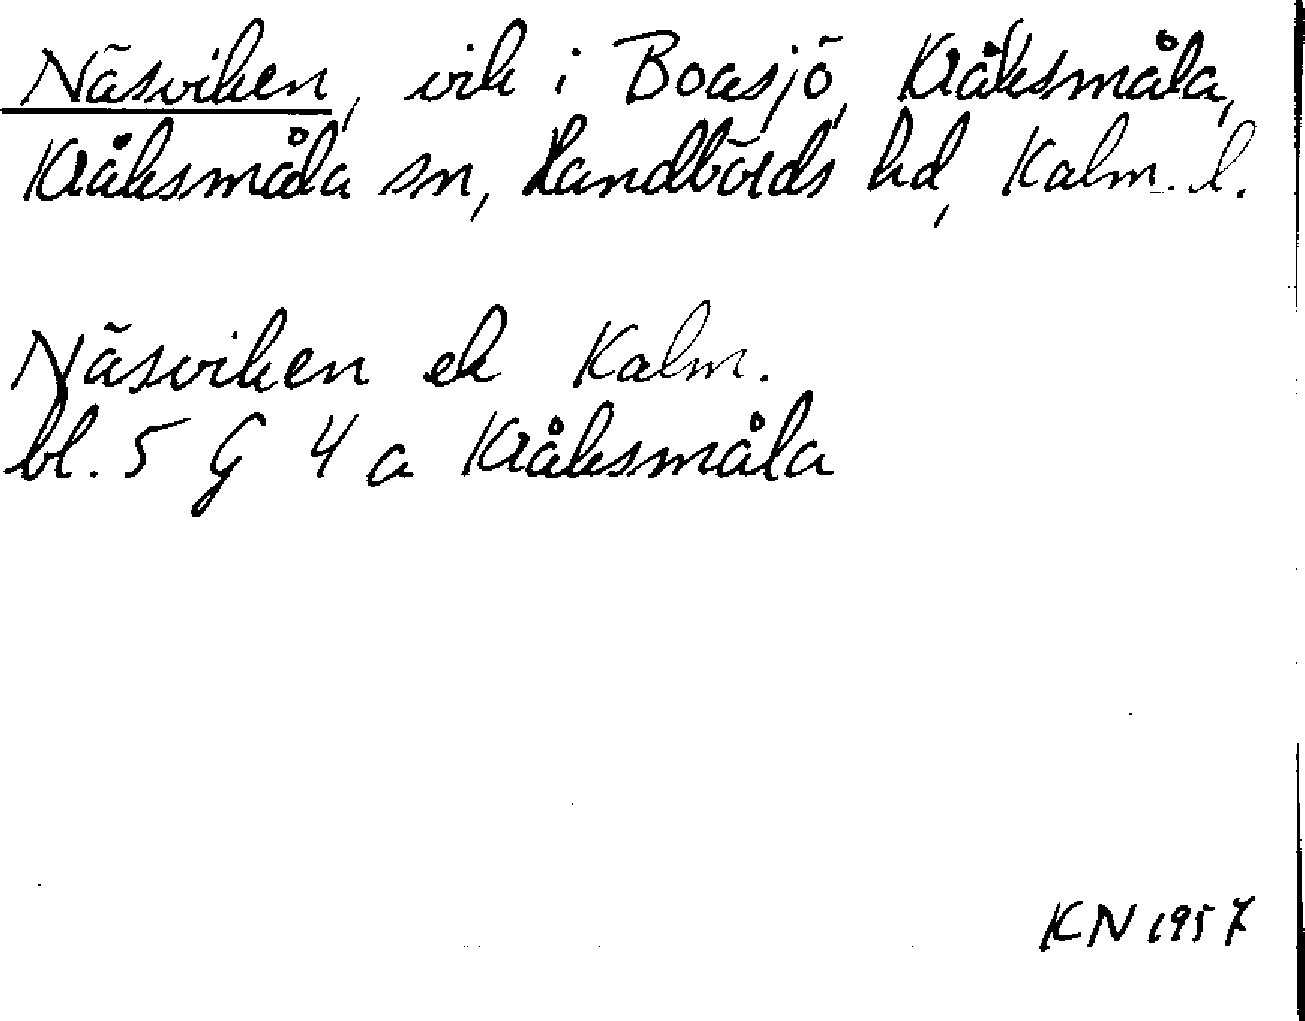 Näsviken, vik i Boasjö, Kråksmåla,
Kråksmåla sn, Handbörds hd, Kalm. l.
Näsviken ek Kalm.
bl. 5 G 4 a Kråksmåla
KN 1957